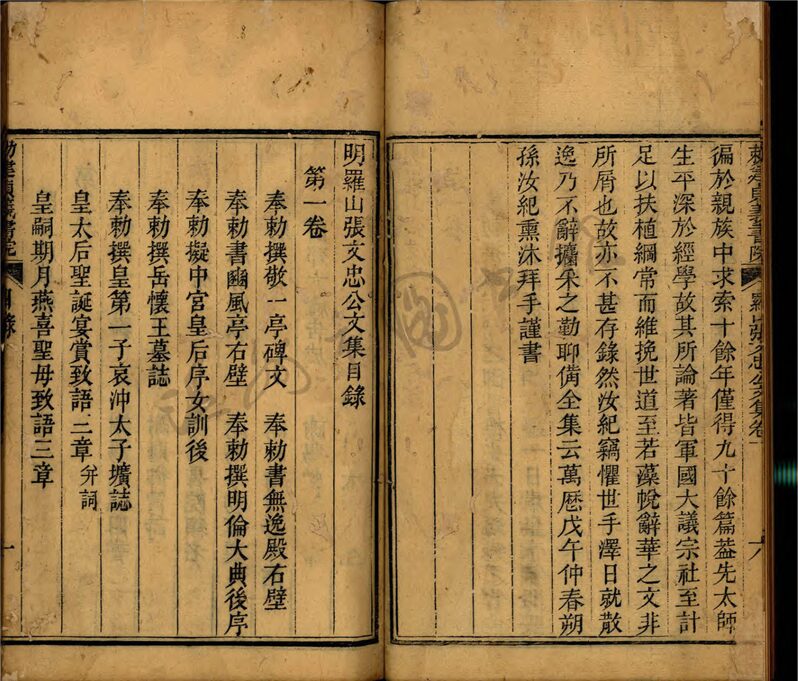 徧於親族中求索十餘年僅得九十餘篇葢先太師
生平深於經學故其所論著皆軍國大議宗社至計
足以扶植綱常而維挽世道至若藻帨辭華之文非
所屑也故亦不甚存錄然汝紀竊懼世手澤日就散
逸乃不辭攟釆之勤聊備全集云萬厯戊午仲春朔
孫汝紀熏沐拜手謹書
明羅山張文忠公文集目錄
第一卷
奉勅撰敬一亭碑文 奉勅書無逸殿右壁
奉勅書豳風亭右壁 奉勅撰明倫大典後序
奉勅擬中宮皇后序女訓後
奉勅撰岳懷王墓誌
奉勅撰皇第一子哀沖太子壙誌
皇太后聖誕宴賞致語二章 分詞
皇嗣期月燕喜聖母致語三章
目錄
一